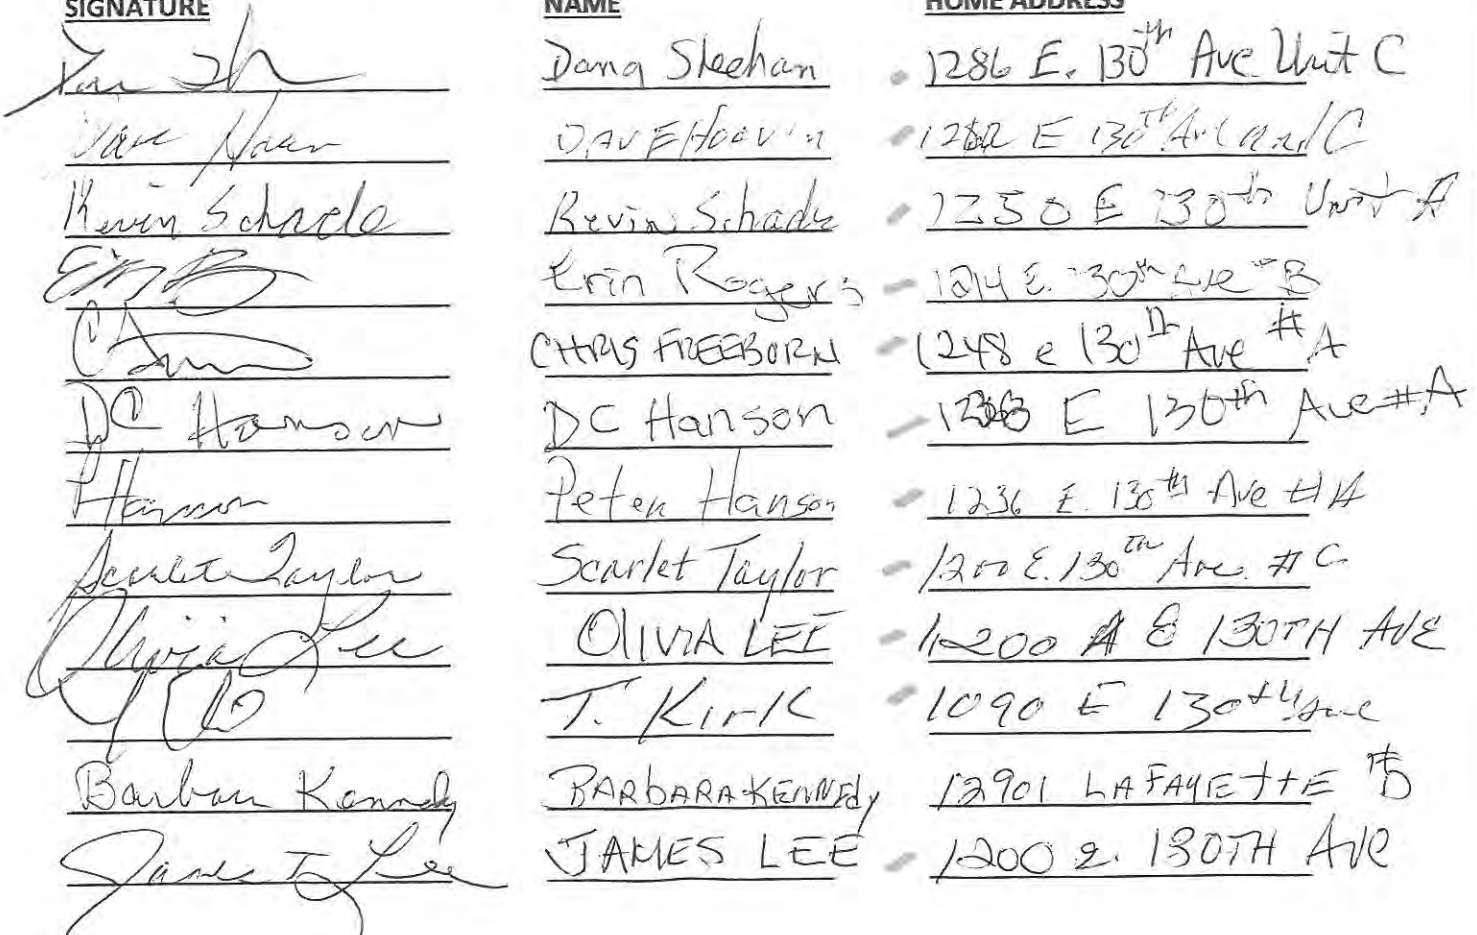 SIGNATURE NAME HOME ADDRESS
Dana Sheehan 1286 E. 130th Ave Unit C
DAVE E 130th Ave C
Kevin Schade Kevin Schade 1250 E 130th Unit A
Erin Rogers 1214 E. 130th Ave #B
CHRIS FREEBORN 1248 e 130th Ave #A
DC Hanson DC Hanson E 130th Ave #A
Hanson Peter Hanson 1236 E. 130th Ave #A
Scarlet Taylor Scarlet Taylor 1200 E. 130th Ave. #C
Olivia Lee OLIVIA LEE 1200 A E 130TH AVE
T. Kirk 1090 E 130th Ave
Barbara Kennedy BARBARA KENNEDY 12901 LAFAYETTE #D
James T Lee JAMES LEE 1200 E. 130TH AVE